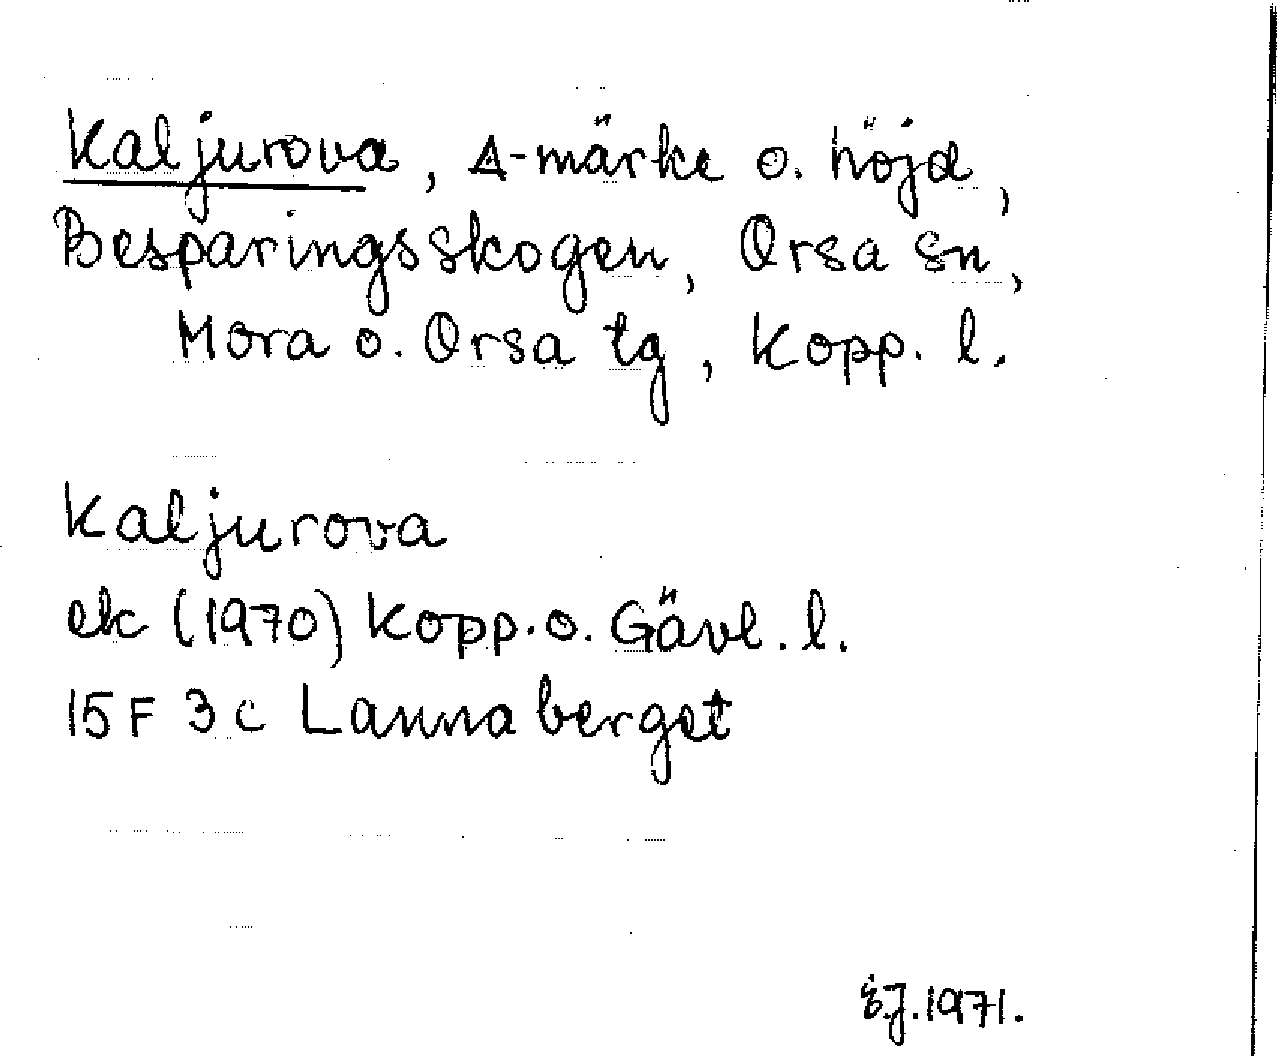 Kaljurova, Δ-märke o. höjd,
Besparingsskogen, Orsa sn,
Mora o. Orsa tg, Kopp. l.
Kaljurova
ek (1970) Kopp. o. Gävl. l.
15 F 3 c Lannaberget
1971.